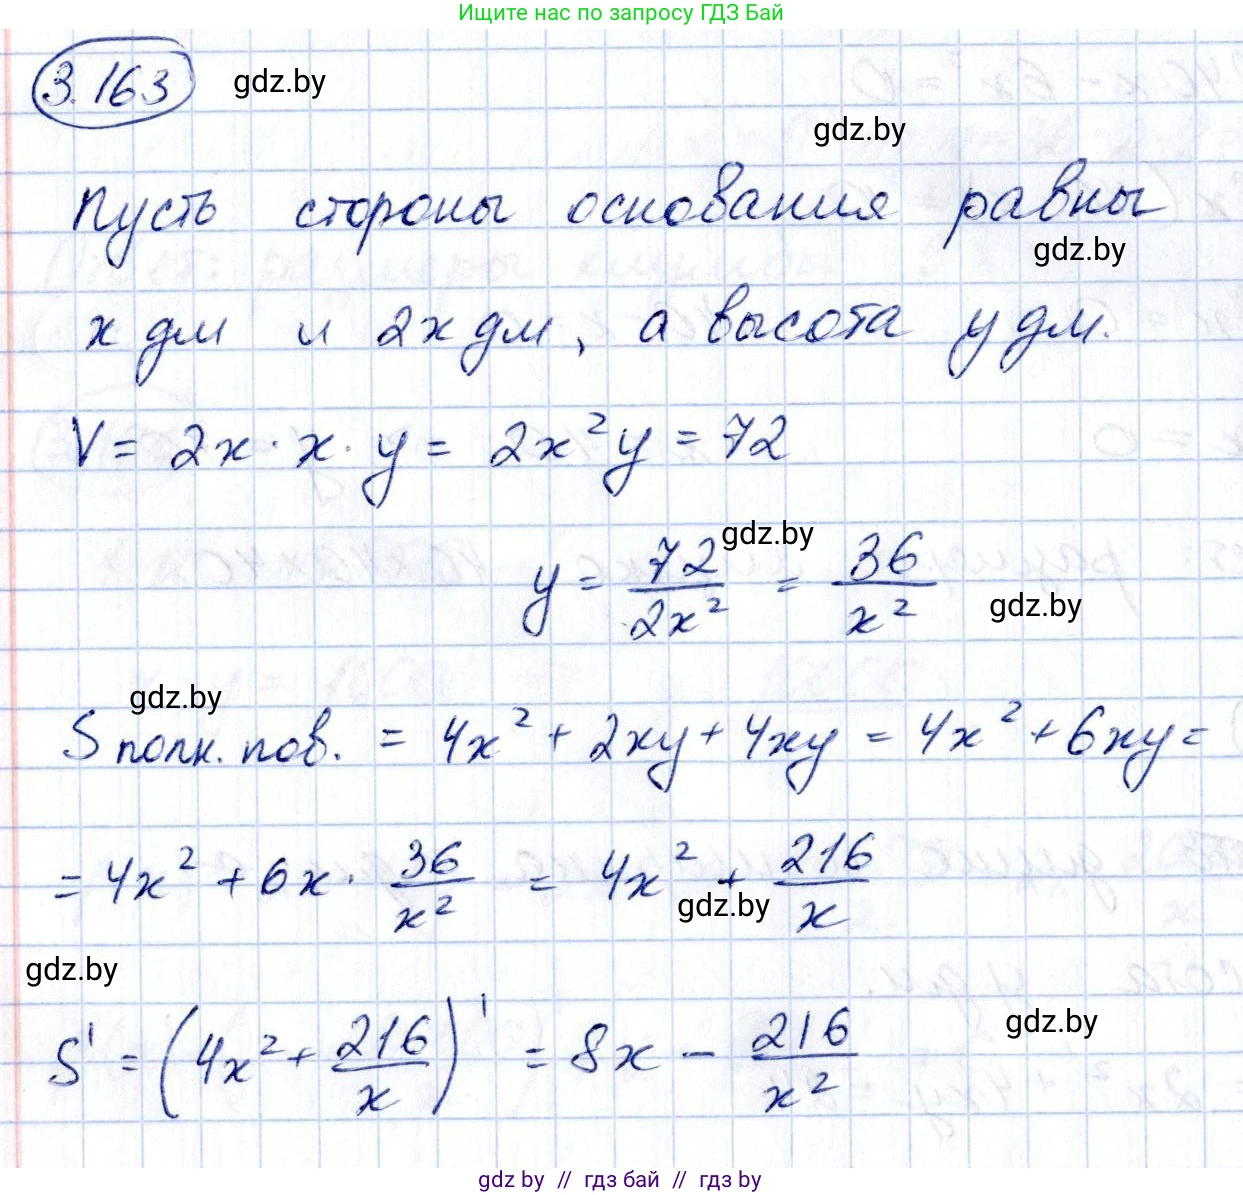 Ищите нас по запросу ГДЗ Бай
3.163 gdz.by
gdz.by
Пусть стороны основания равны
gdz.by
x дм и 2x дм, а высота y дм.
V = 2x · x · y = 2x² y = 72
gdz.by
y = 72/2x² = 36/x²
gdz.by
gdz.by
S полн. пов. = 4x² + 2xy + 4xy = 4x² + 6xy =
= 4x² + 6x · 36/x² = 4x² + 216/x
gdz.by
gdz.by
gdz.by
S' = (4x² + 216/x)' = 8x - 216/x²
gdz.by // гдз бай // гдз by